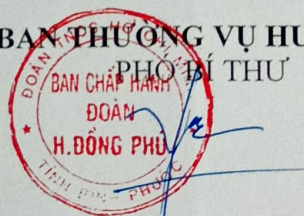 BAN THƯỜNG VỤ HU
PHÓ BÍ THƯ
ĐOÀN TNCS HỒ CHÍ MINH
BAN CHẤP HÀNH
ĐOÀN
H.ĐỒNG PHÚ
TỈNH BÌNH PHƯỚC